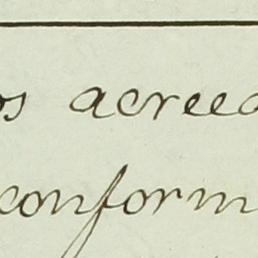 os acreed
conform